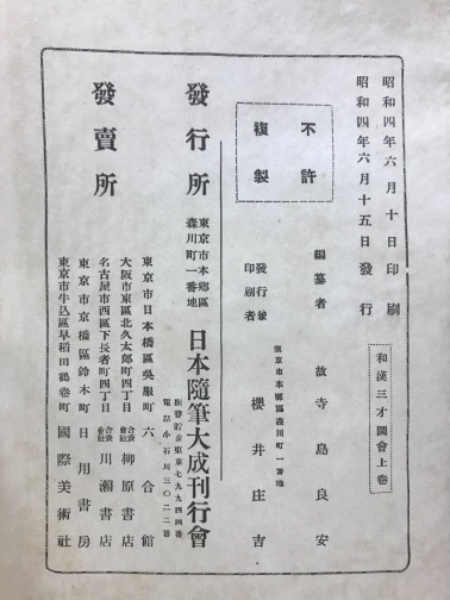 昭和四年六月十日印刷
昭和四年六月十五日發行
和漢三才圖會上卷
不許
複製
編纂者　故寺島良安
發行兼
印刷者
東京市本鄕區森川町一番地
櫻井庄吉
發行所
東京市本鄕區
森川町一番地
日本隨筆大成刊行會
振替貯金東京七九九四四番
電話小石川三〇二二番
發賣所
東京市日本橋區吳服町　六合館
大阪市東區北久太郞町四丁目　合資會社　柳原書店
名古屋市西區下長者町四丁目　合資會社　川瀨書店
東京市京橋區鈴木町　日用書房
東京市牛込區早稻田鶴卷町　國際美術社